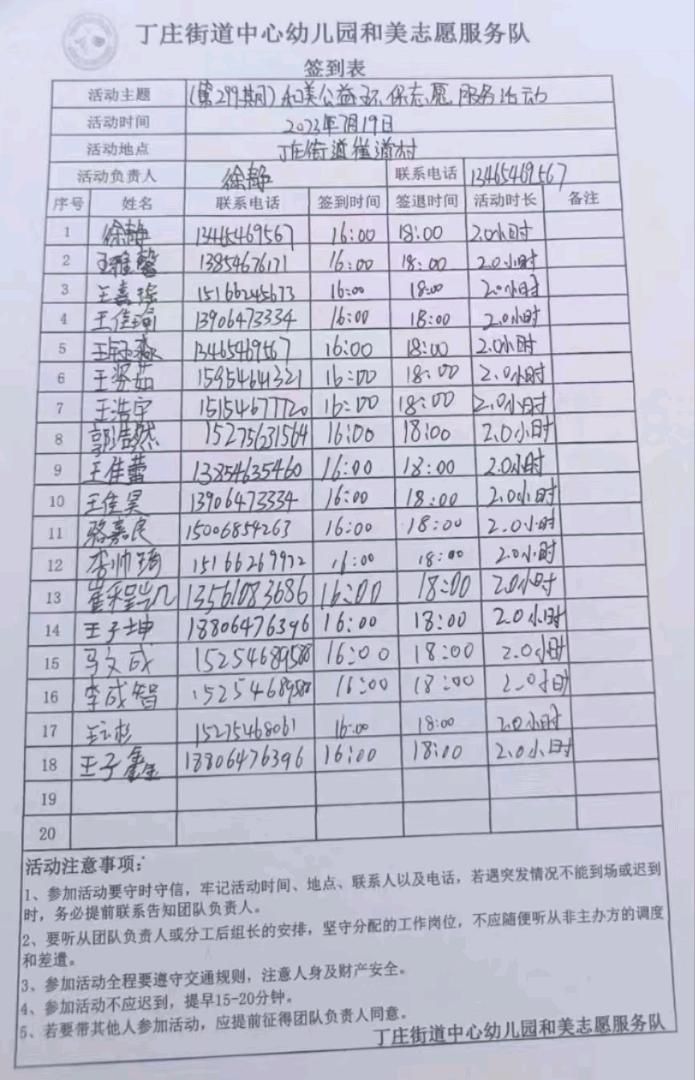 丁庄街道中心幼儿园和美志愿服务队
签到表
活动主题 (第299期)和美公益环保志愿服务活动
活动时间 2023年7月19日
活动地点 丁庄街道崔道村
活动负责人 徐静 联系电话 13465469567
序号 姓名 联系电话 签到时间 签退时间 活动时长 备注
1 徐静 13465469567 16:00 18:00 2.0小时
2 王雅馨 13854676171 16:00 18:00 2.0小时
3 王嘉瑞 15166245673 16:00 18:00 2.0小时
4 王佳瑜 13906473334 16:00 18:00 2.0小时
5 13465469567 16:00 18:00 2.0小时
6 15954641321 16:00 18:00 2.0小时
7 王浩宇 15154677720 16:00 18:00 2.0小时
8 郭浩然 15275631564 16:00 18:00 2.0小时
9 王佳蕾 13854635460 16:00 18:00 2.0小时
10 王佳昊 13906473334 16:00 18:00 2.0小时
11 骆嘉良 15006854263 16:00 18:00 2.0小时
12 李帅琦 15166269972 16:00 18:00 2.0小时
13 崔程凯 13561083686 16:00 18:00 2.0小时
14 王子坤 18806476396 16:00 18:00 2.0小时
15 马文成 15254689588 16:00 18:00 2.0小时
16 李成智 15254689588 16:00 18:00 2.0小时
17 15275468061 16:00 18:00 2.0小时
18 王子鑫 18806476396 16:00 18:00 2.0小时
19
20
活动注意事项：
1、参加活动要守时守信，牢记活动时间、地点、联系人以及电话，若遇突发情况不能到场或迟到
时，务必提前联系告知团队负责人。
2、要听从团队负责人或分工后组长的安排，坚守分配的工作岗位，不应随便听从非主办方的调度
和差遣。
3、参加活动全程要遵守交通规则，注意人身及财产安全。
4、参加活动不应迟到，提早15-20分钟。
5、若要带其他人参加活动，应提前征得团队负责人同意。
丁庄街道中心幼儿园和美志愿服务队